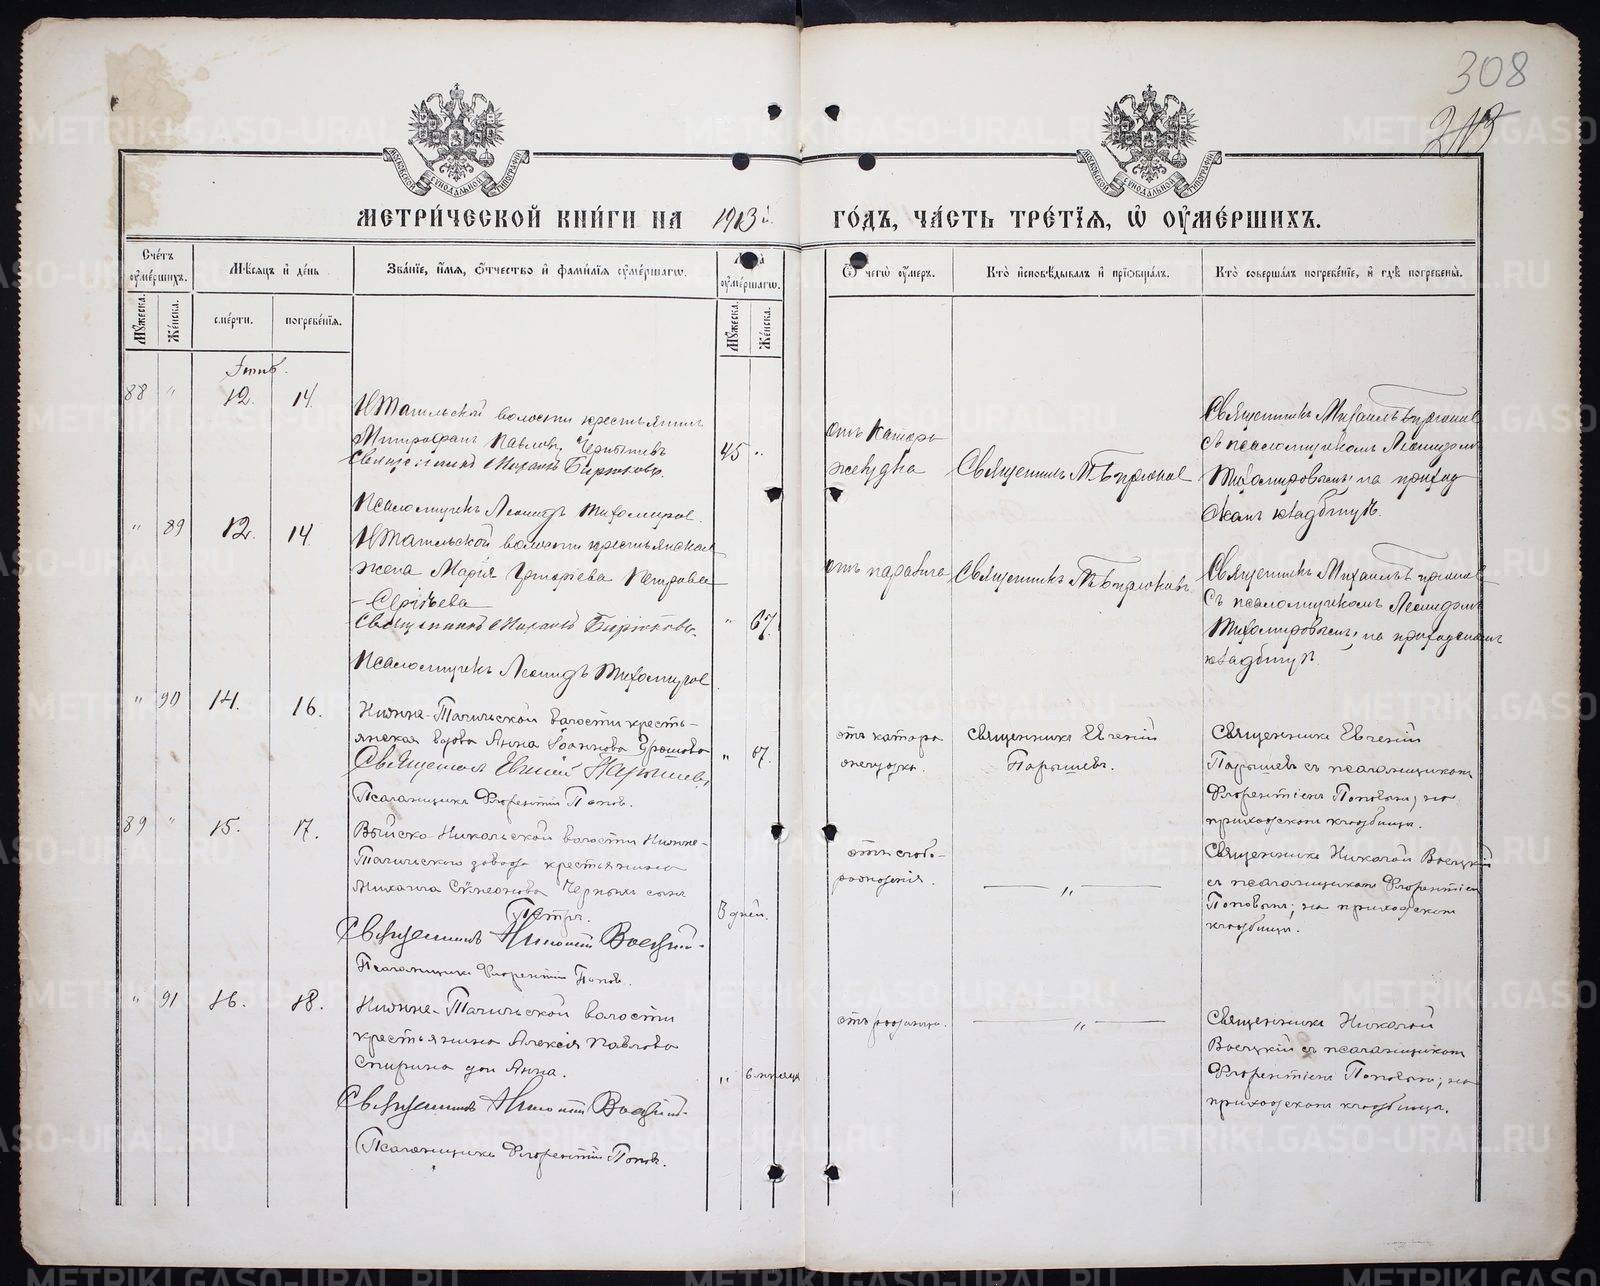 308
213
МЕТРИ́ЧЕСКОЙ КНИ́ГИ НА 1913 й. ГО́ДЪ, ЧА́СТЬ ТРЕ́ТЇѦ, Ѡ҆ ОУ҆МЕ́РШИХЪ.
Сче́тъ оу҆ме́ршихъ.
Мѣ́сяцъ и҆ де́нь
Зва́нїе, и҆́мѧ, ѻ҆́тчество и҆ фами́лїѧ оу҆ме́ршагѡ.
оу҆ме́ршагѡ.
Ѿ чегѡ̀ оу҆́меръ.
Кто̀ и҆сповѣ́дывалъ и҆ прїѡбща́лъ.
Кто̀ соверша́лъ погребе́нїе, и҆ гдѣ̀ погребены̀.
Мꙋ́жеска.
Же́нска.
сме́рти.
погребе́нїѧ.
Мꙋ́жеска.
Же́нска.
88 " 12. 14.
НТагильской волости крестьянинъ
Митрофанъ Павловъ
Священникъ Михаилъ Бирюковъ.
Псаломщикъ Леонидъ Тихомиров.
45 "
отъ катара
желудка
Священникъ М. Бирюков
Священникъ Михаилъ Бирюков
съ псаломщикомъ Леонидом
Тихомировымъ, на приход
скомъ кладбищѣ.
" 89 12. 14.
НТагильской волости крестьянская
жена Марія Григоріева Петрова
Сергѣева
Священникъ Михаилъ Бирюковъ.
Псаломщикъ Леонидъ Тихомиров
" 67.
отъ паралича
Священникъ М. Бирюковъ.
Священникъ Михаилъ Бирюков
съ псаломщикомъ Леонидом
Тихомировымъ, на приходскомъ
кладбищѣ.
" 90 14. 16.
Нижне-Тагильской волости кресть-
янская вдова Анна Іоаннова Ершова
Священник Евгеній Парышевъ,
Псаломщикъ Флорентій Попов.
" 67.
отъ катара
желудка.
Священникъ Евгеній
Парышевъ.
Священникъ Евгеній
Парышевъ съ псаломщикомъ
Флорентіемъ Поповымъ, на
приходскомъ кладбищѣ.
89 " 15. 17.
Выйско-Никольской волости Нижне-
Тагильскаго завода крестьянина
Михаила Сѵмеонова сынъ
Петръ.
Священникъ Николай Воецкій.
Псаломщикъ Флорентій Попов.
3 дней.
отъ слабо-
рожденія.
— " —
Священникъ Николай Воецкій
съ псаломщикомъ Флорентіем
Поповымъ, на приходскомъ
кладбищѣ.
" 91 16. 18.
Нижне-Тагильской волости
крестьянина Алексія Павлова
Спирина дочь Анна.
Священникъ Николай Воецкій.
Псаломщикъ Флорентій Попов.
" 6 мѣсяца
отъ родимца.
— " —
Священникъ Николай
Воецкій съ псаломщикомъ
Флорентіемъ Поповымъ, на
приходскомъ кладбищѣ.
METRIKI.GASO-URAL.RU